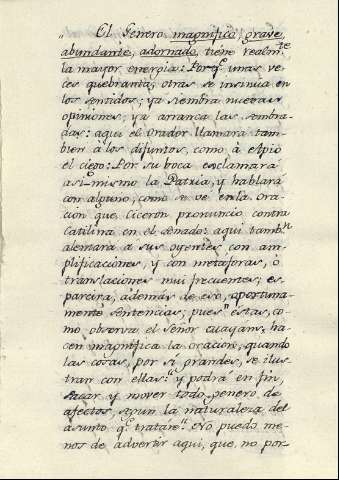 „ El Genero magnifico, grave,
abundante, adornado, tiene realmte
la mayor energia: Porq.e unas ve-
ces quebranta, otras se insinúa en
los sentidos; ya siembra nuevas
opiniones, ya arranca las sembra-
das: aqui el Orador llamará tam-
bien á los difuntos, como á Apio
el ciego: Por su boca exclamará
asi mismo la Patria, y hablará
con alguno, como se ve en la ora-
cion que Ciceron pronunció contra
Catilina en el senado: aqui tambn
alentará a sus oyentes con am-
plificaciones, y con metaforas, ó
translaciones mui frecuentes; es-
parcirá, además de eso, oportuna-
mente sentencias; pues "estas, co-
mo observa el Señor
hacen magnifica la oracion, quando
las cosas, por sí grandes, se ilus-
tran con ellas:" y podrá en fin,
sacar y mover todo genero de
afectos, segun la naturaleza del
asunto q.e tratare." No puedo me-
nos de advertir aqui, que, no por